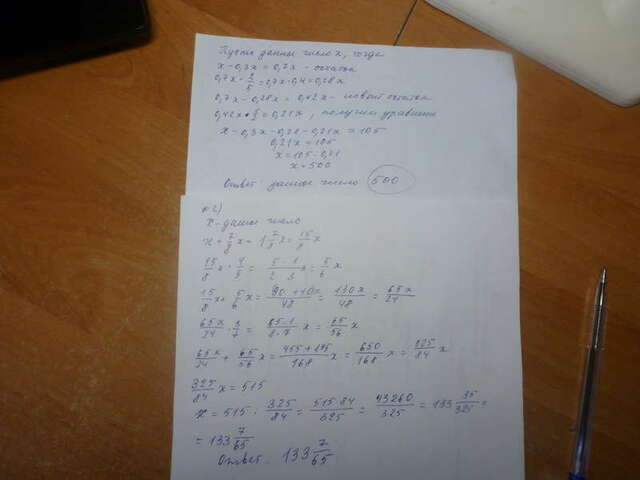 Пусть данное число x, тогда
x - 0,3x = 0,7x - остаток
0,7x · 2/5 = 0,7x · 0,4 = 0,28x
0,7x - 0,28x = 0,42x - новый остаток
0,42x · 1/2 = 0,21x, получим уравнение
x - 0,3x - 0,28 - 0,21x = 105
0,21x = 105
x = 105 : 0,21
x = 500
Ответ: данное число 500
№2)
x - данное число
x + 7/8 x = 1 7/8 x = 15/8 x
15/8 x · 4/9 = 5 · 1/2 · 3 x = 5/6 x
15/8 x + 5/6 x = 90 + 40x/48 = 130x/48 = 65x/24
65x/24 · 3/7 = 65 · 1/8 · 7 x = 65/56 x
65x/24 + 65/56 x = 455 + 195/168 x = 650/168 x = 325/84 x
325/84 x = 515
x = 515 : 325/84 = 515 · 84/325 = 43260/325 = 133 35/325 =
= 133 7/65
Ответ. 133 7/65